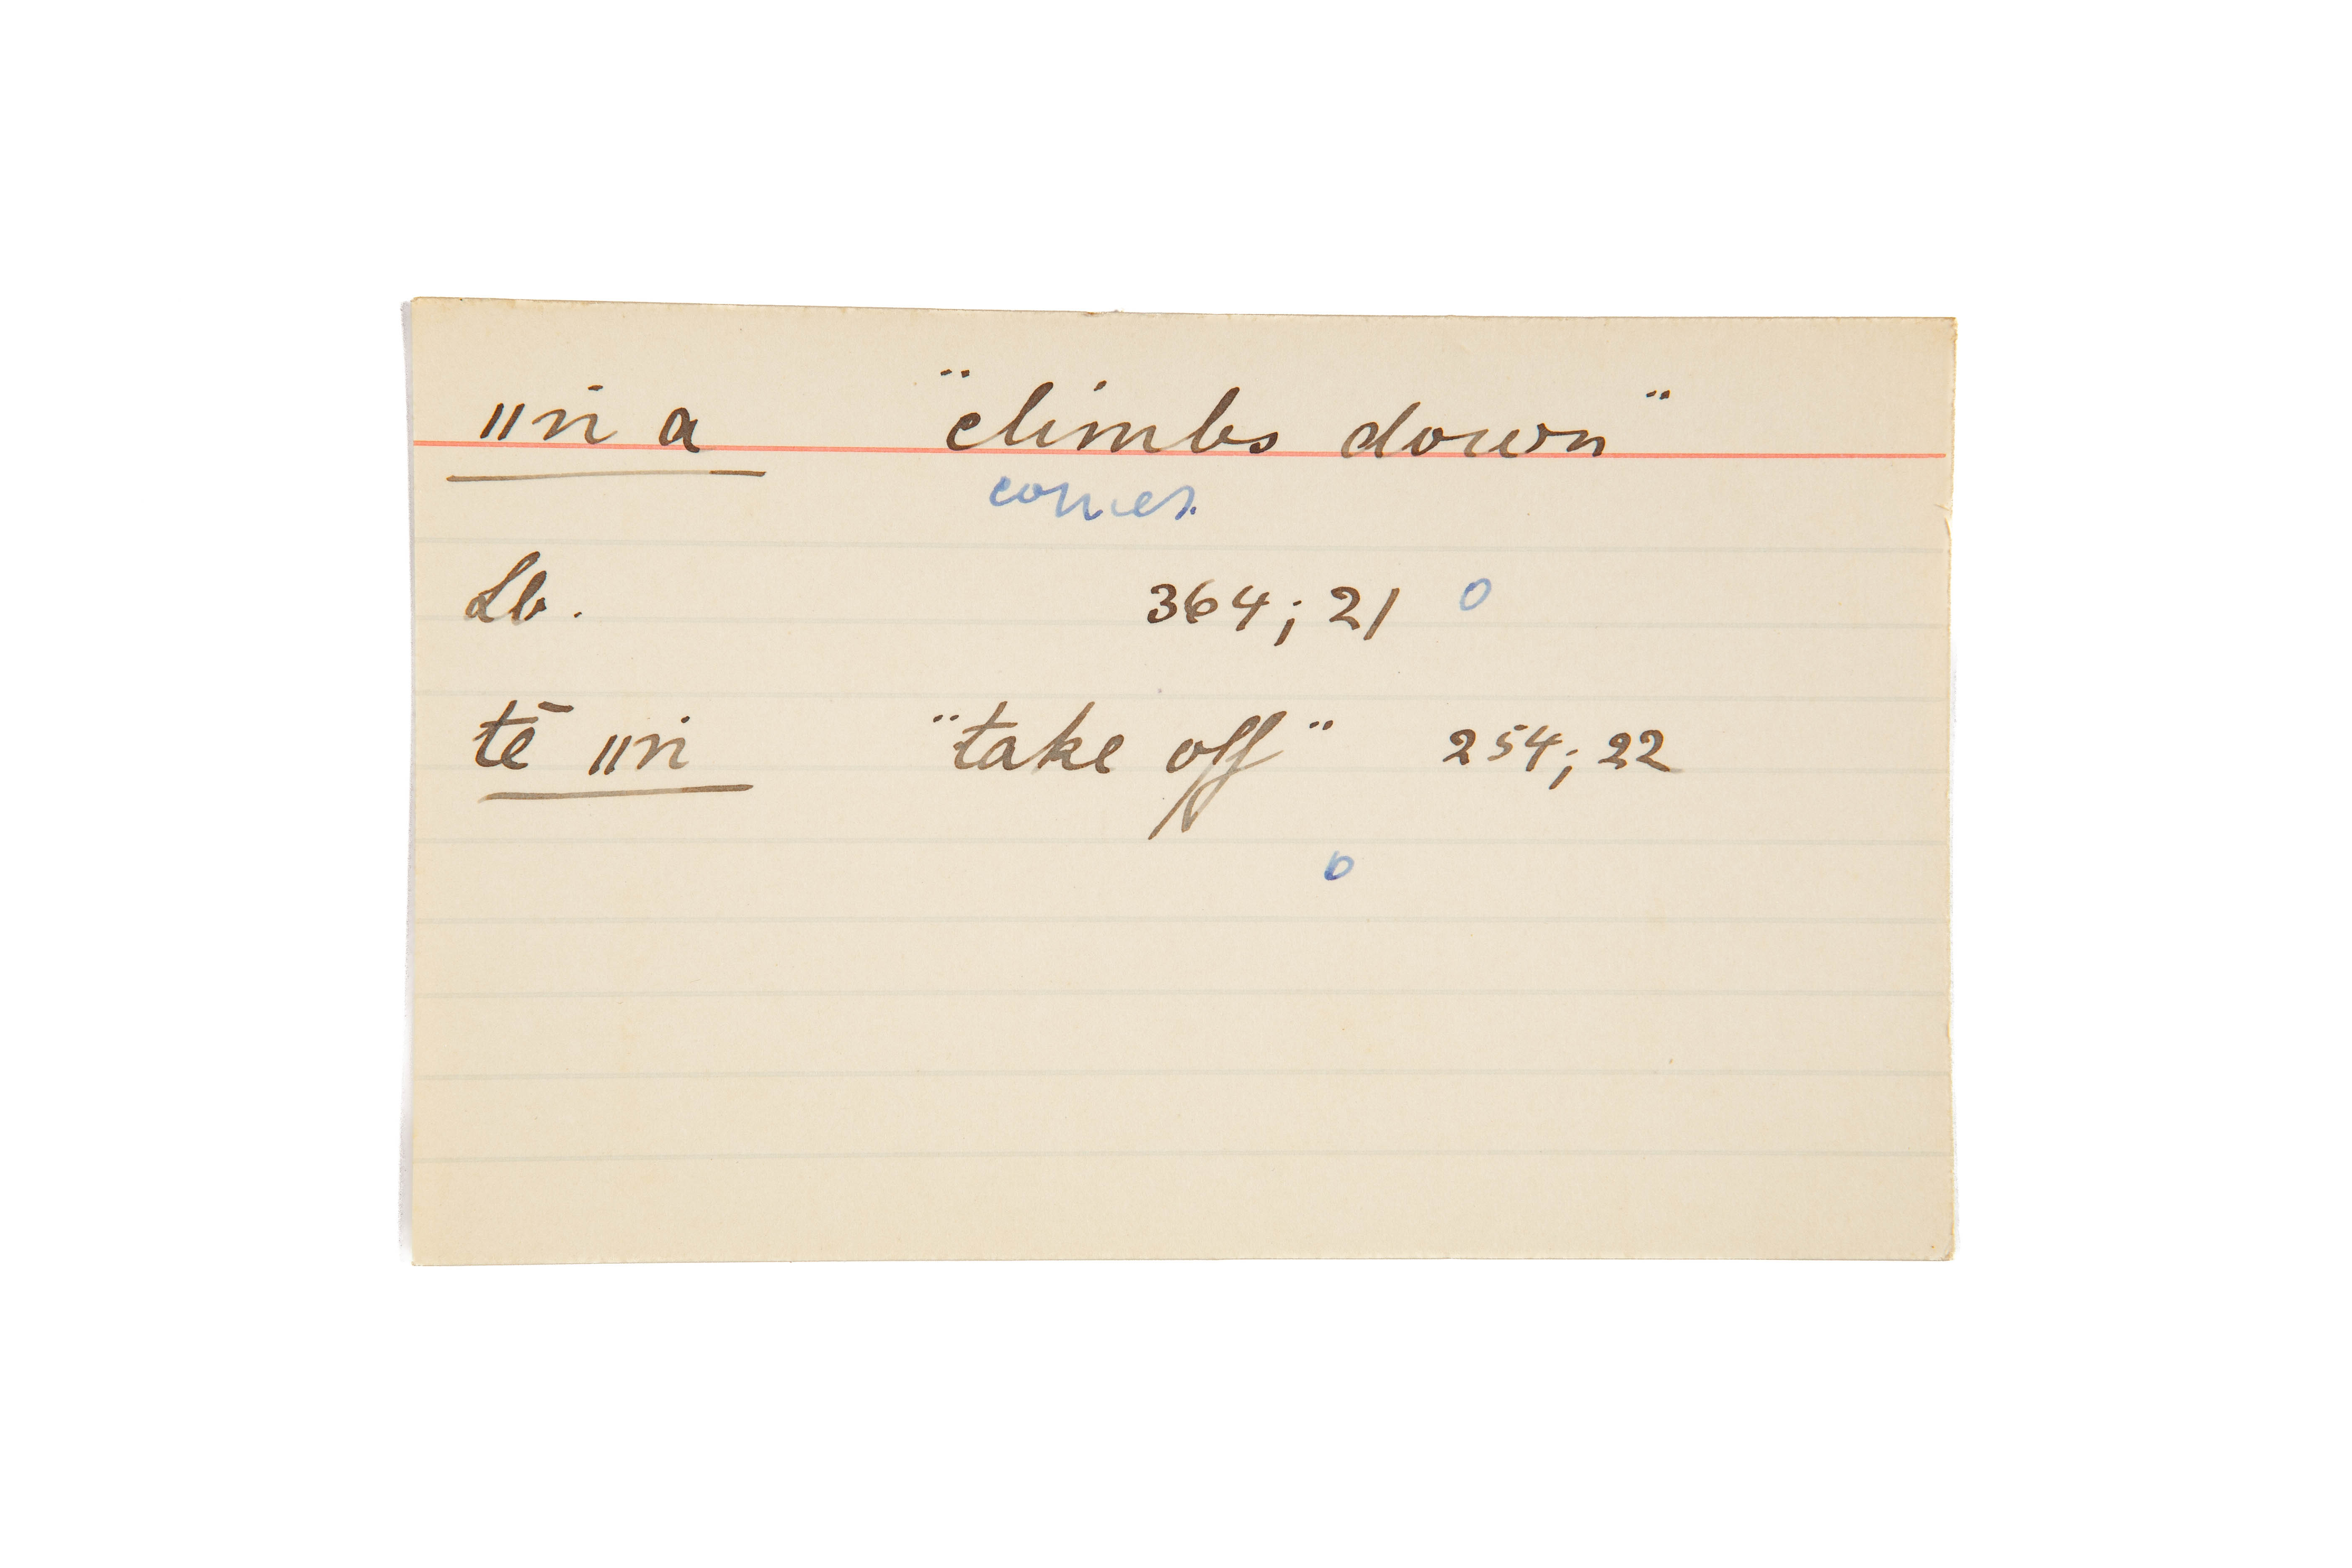 ǁṅ a "climbs down"
comes.
Lb. 364; 21 o
tē ǁṅ "take off" 254; 22
o